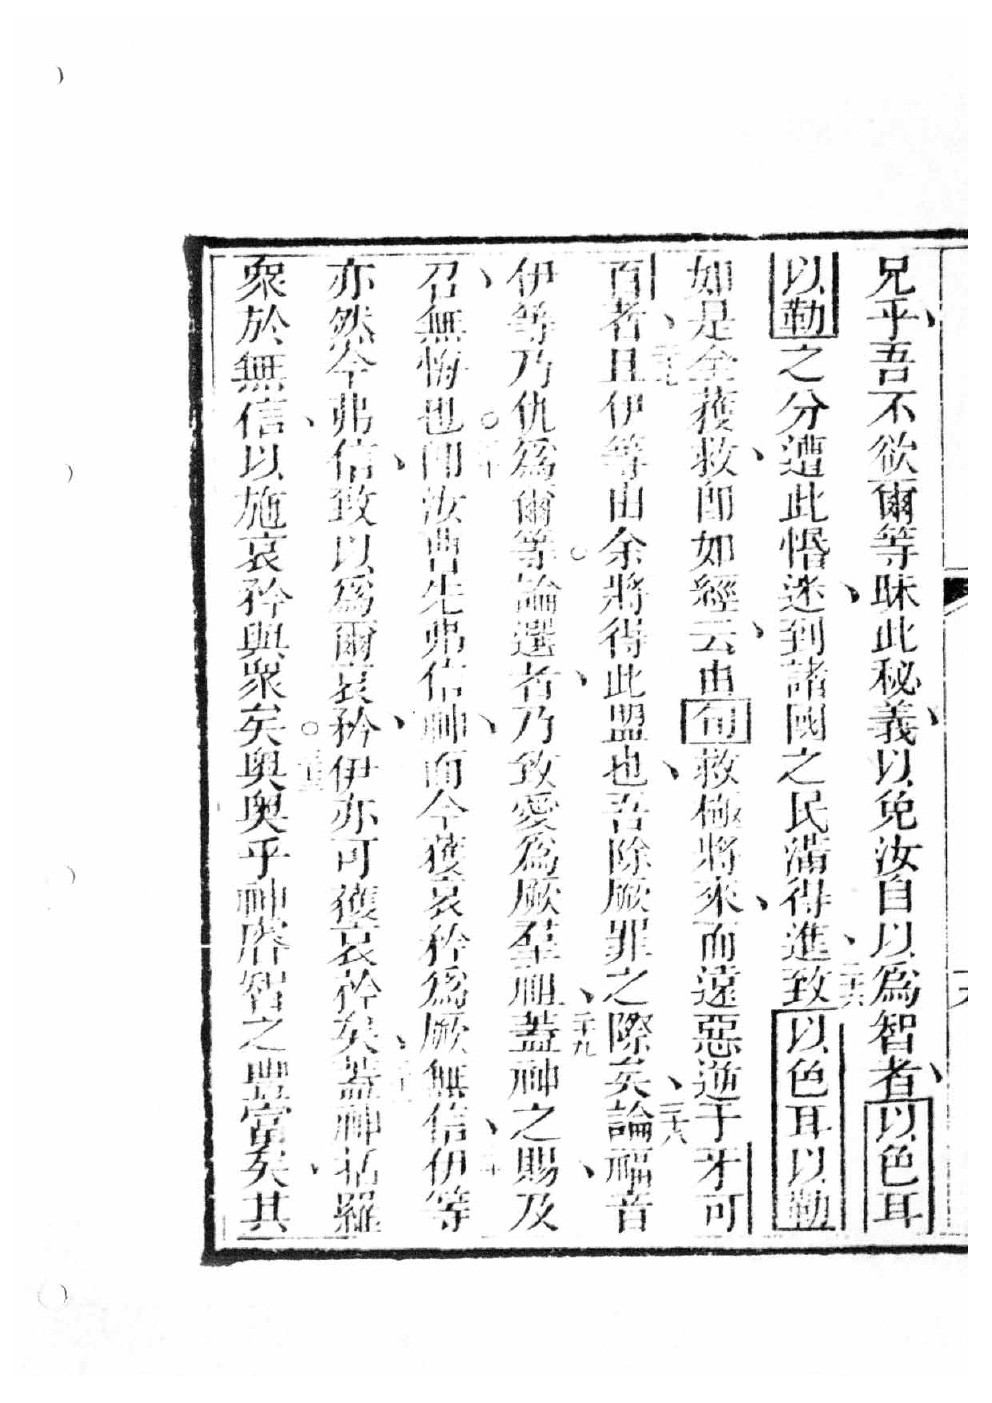 兄乎、吾不欲爾等昧此秘義、以免汝自以為智者、以色耳
以勒之分遭此惛迷、到諸國之民滿得進致、二十六以色耳以勒
如是全獲救、即如經云、由旬救極將來、而遠惡逆于牙可
百者、二十七且伊等由余將得此盟也、吾除厥罪之際矣、二十八論福音
伊等乃仇為爾等。論選者、乃致愛為厥羣祖、二十九蓋神之賜、及
召、無悔也。三十即汝曹先弗信神、而今獲哀矜為厥無信、伊等
亦然、今弗信、致以為爾哀矜、伊亦可獲哀矜矣、蓋神括羅
衆於無信、以施哀矜與衆矣。三十三奧奧乎神睿智之豐富矣、其